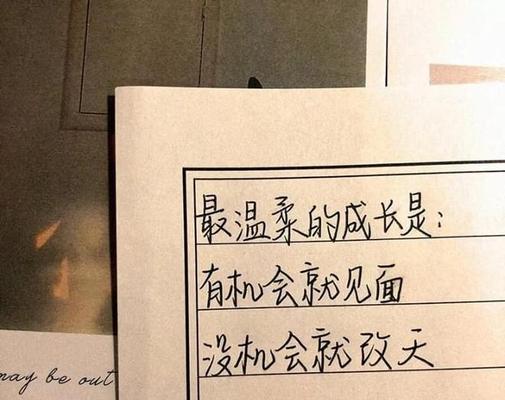 最温柔的成长是：
有机会就见面
没机会就改天
may be out